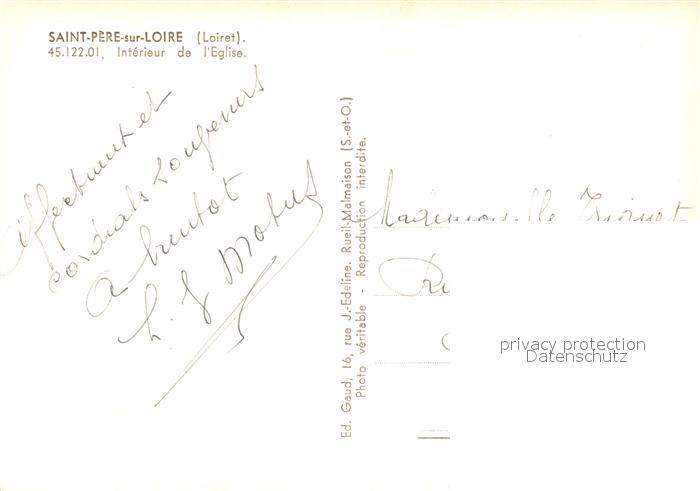 SAINT-PÈRE-sur-LOIRE (Loiret).
45.122.01, Intérieur de l'Eglise.
et
cordials souvenirs
A bientot
Ed. Gaud, 16, rue J.-Edeline, Rueil-Malmaison (S.-et-O.)
Photo véritable - Reproduction interdite.
Mademoiselle
privacy protection
Datenschutz